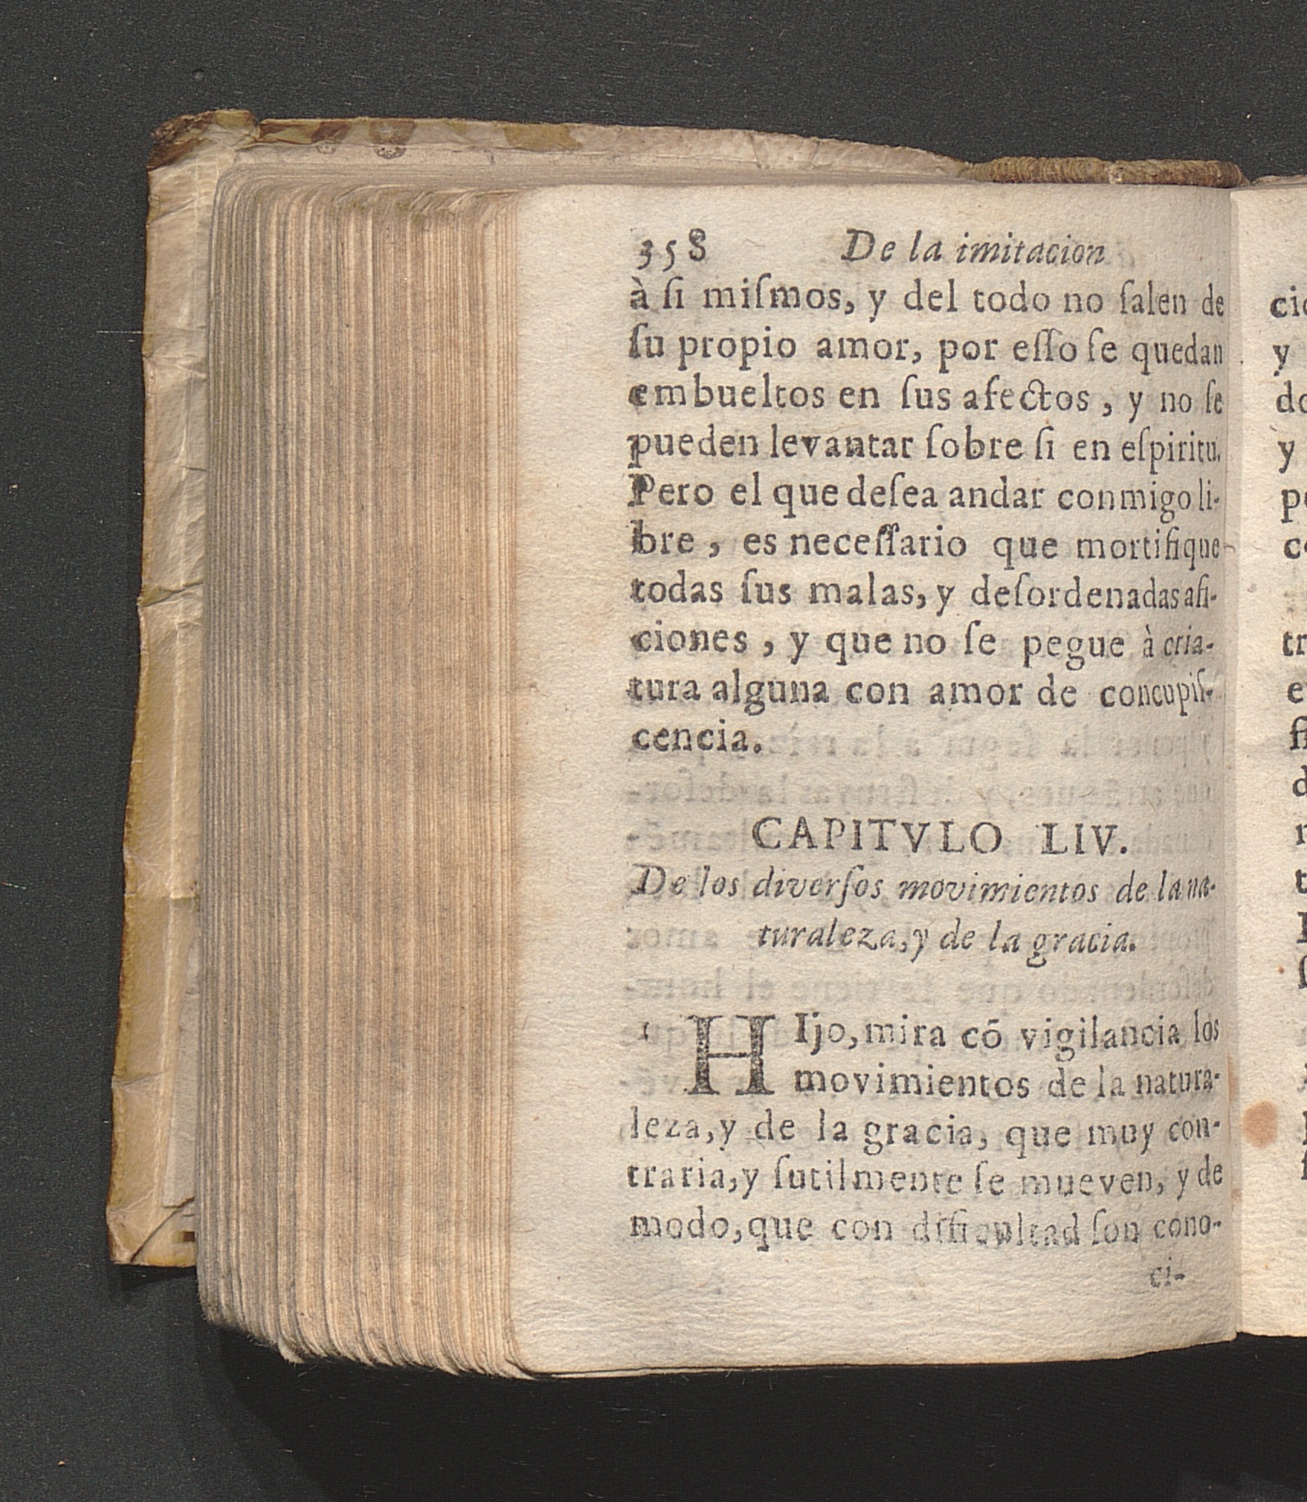 358 De la imitacion
à ſi miſmos, y del todo no ſalen de
ſu propio amor, por eſſo ſe quedan
embueltos en ſus afectos, y no ſe
pueden levantar ſobre ſi en eſpiritu.
Pero el que deſea andar conmigo li-
bre, es neceſſario que mortifique
todas ſus malas, y deſordenadas afi-
ciones, y que no ſe pegue à cria-
tura alguna con amor de concupiſ-
cencia.
CAPITVLO LIV.
De los diverſos movimientos de la na-
turaleza, y de la gracia.
1 HIjo, mira cō vigilancia los
movimientos de la natura-
leza, y de la gracia, que muy con-
traria, y ſutilmente ſe mueven, y de
modo, que con dificultad ſon cono-
ci-